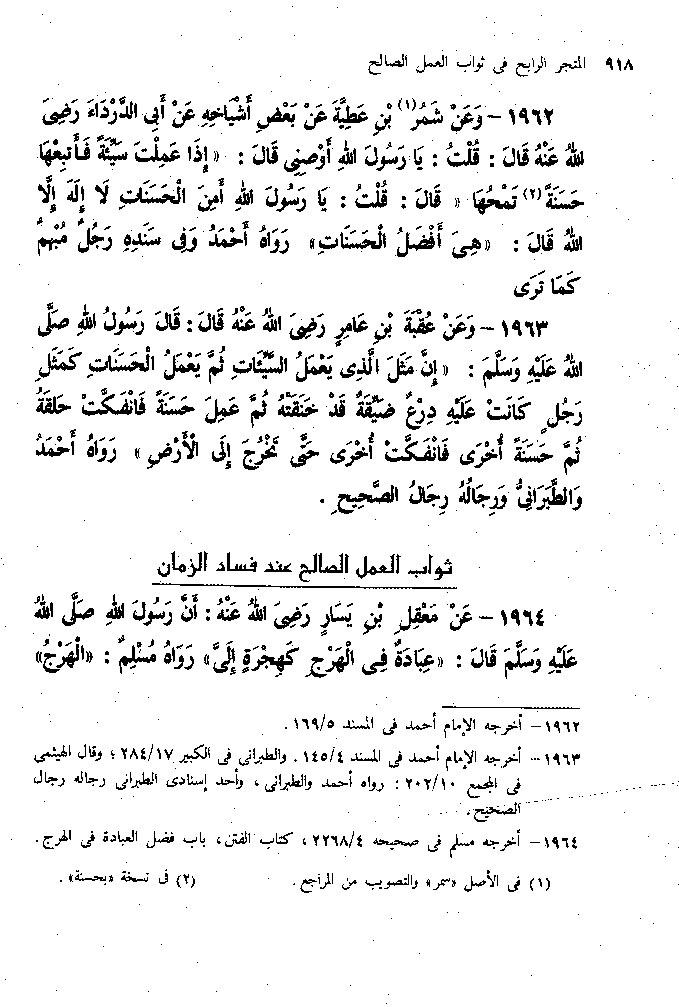 ٩١٨ المتجر الرابح فى ثواب العمل الصالح
١٩٦٢ – وَعَنْ شَمُرِ(١) بْنِ عَطِيَّةَ عَنْ بَعْضِ أَشْيَاخِهِ عَنْ أَبِي الدَّرْدَاءَ رَضِىَ
اللهُ عَنْهُ قَالَ : قُلْتُ : يَا رَسُولَ اللهِ أَوْصِنِى قَالَ : «إِذَا عَمِلْتَ سَيِّئَةً فَأَتبِعْهَا
حَسَنَةً(٢) تَمْحُهَا » قَالَ : قُلْتُ : يَا رَسُولَ اللهِ أَمِنَ الْحَسَنَاتِ لَا إِلَهَ إِلَّا
اللهُ قَالَ : «هِىَ أَفْضَلُ الْحَسَنَاتِ» رَوَاهُ أَحْمَدُ وَفِى سَنَدِهِ رَجُلٌ مُبْهَمٌ
كَمَا تَرَى
١٩٦٣ – وَعَنْ عُقْبَةَ بْنِ عَامِرٍ رَضِىَ اللهُ عَنْهُ قَالَ : قَالَ رَسُولُ اللهِ صَلَّى
اللهُ عَلَيْهِ وَسَلَّمَ : «إِنَّ مَثَلَ الَّذِى يَعْمَلُ السَّيِّئَاتِ ثُمَّ يَعْمَلُ الْحَسَنَاتِ كَمَثَلِ
رَجُلٍ كَانَتْ عَلَيْهِ دِرْعٌ ضَيِّقَةٌ قَدْ خَنَقَتْهُ ثُمَّ عَمِلَ حَسَنَةً فَانْفَكَّتْ حَلَقَةٌ
ثُمَّ حَسَنَةً أُخْرَى فَانْفَكَّتْ أُخْرَى حَتَّى تَخْرُجَ إِلَى الْأَرْضِ » رَوَاهُ أَحْمَدُ
وَالطَّبَرَانِىُّ وَرِجَالُهُ رِجَالُ الصَّحِيحِ .
ثواب العمل الصالح عند فساد الزمان
١٩٦٤ – عَنْ مَعْقِلِ بْنِ يَسَارٍ رَضِىَ اللهُ عَنْهُ : أَنَّ رَسُولَ اللهِ صَلَّى اللهُ
عَلَيْهِ وَسَلَّمَ قَالَ : «عِبَادَةٌ فِى الْهَرْجِ كَهِجْرَةٍ إِلَىَّ» رَوَاهُ مُسْلِمٌ : «الْهَرْجُ»
١٩٦٢ – أخرجه الإمام أحمد فى المسند ١٦٩/٥ .
١٩٦٣ – أخرجه الإمام أحمد فى المسند ١٤٥/٤ . والطبرانى فى الكبير ٢٨٤/١٧ ؛ وقال الهيثمى
فى المجمع ٢٠٢/١٠ : رواه أحمد والطبرانى ، وأحد إسنادى الطبرانى رجاله رجال
الصحيح .
١٩٦٤ – أخرجه مسلم فى صحيحه ٢٢٦٨/٤ ، كتاب الفتن ، باب فضل العبادة فى الهرج .
(١) فى الأصل «سمر» والتصويب من المراجع . (٢) فى نسخة «بحسنة» .